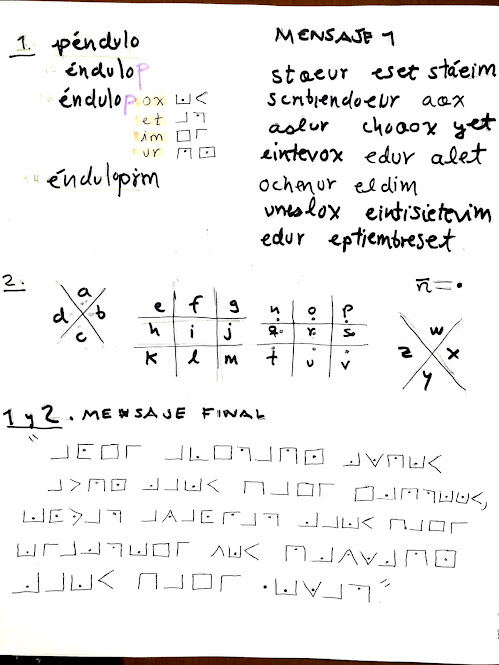 1. péndulo
éndulop
éndulopox
et
im
ur
éndulopim
MENSAJE 1
staeur eset stáeim
scribiendoeur aox
aslur chooox yet
eintevox edur alet
ochenur eldim
uneslox eintisietevim
edur eptiembreset
2.
a
d b
c
e f g
h i j
k l m
n o p
q r s
t u v
n̄ = •
w
z x
y
1 y 2. MENSAJE FINAL